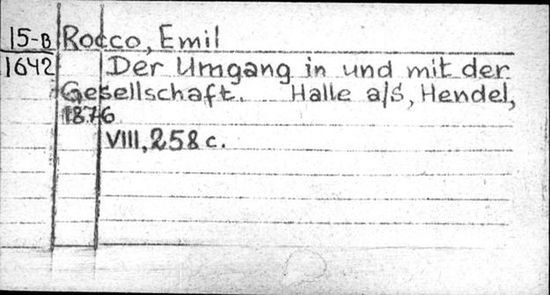 15-B Rocco, Emil
1642 Der Umgang in und mit der
Gesellschaft. Halle a/S, Hendel,
1876
VIII, 258 c.